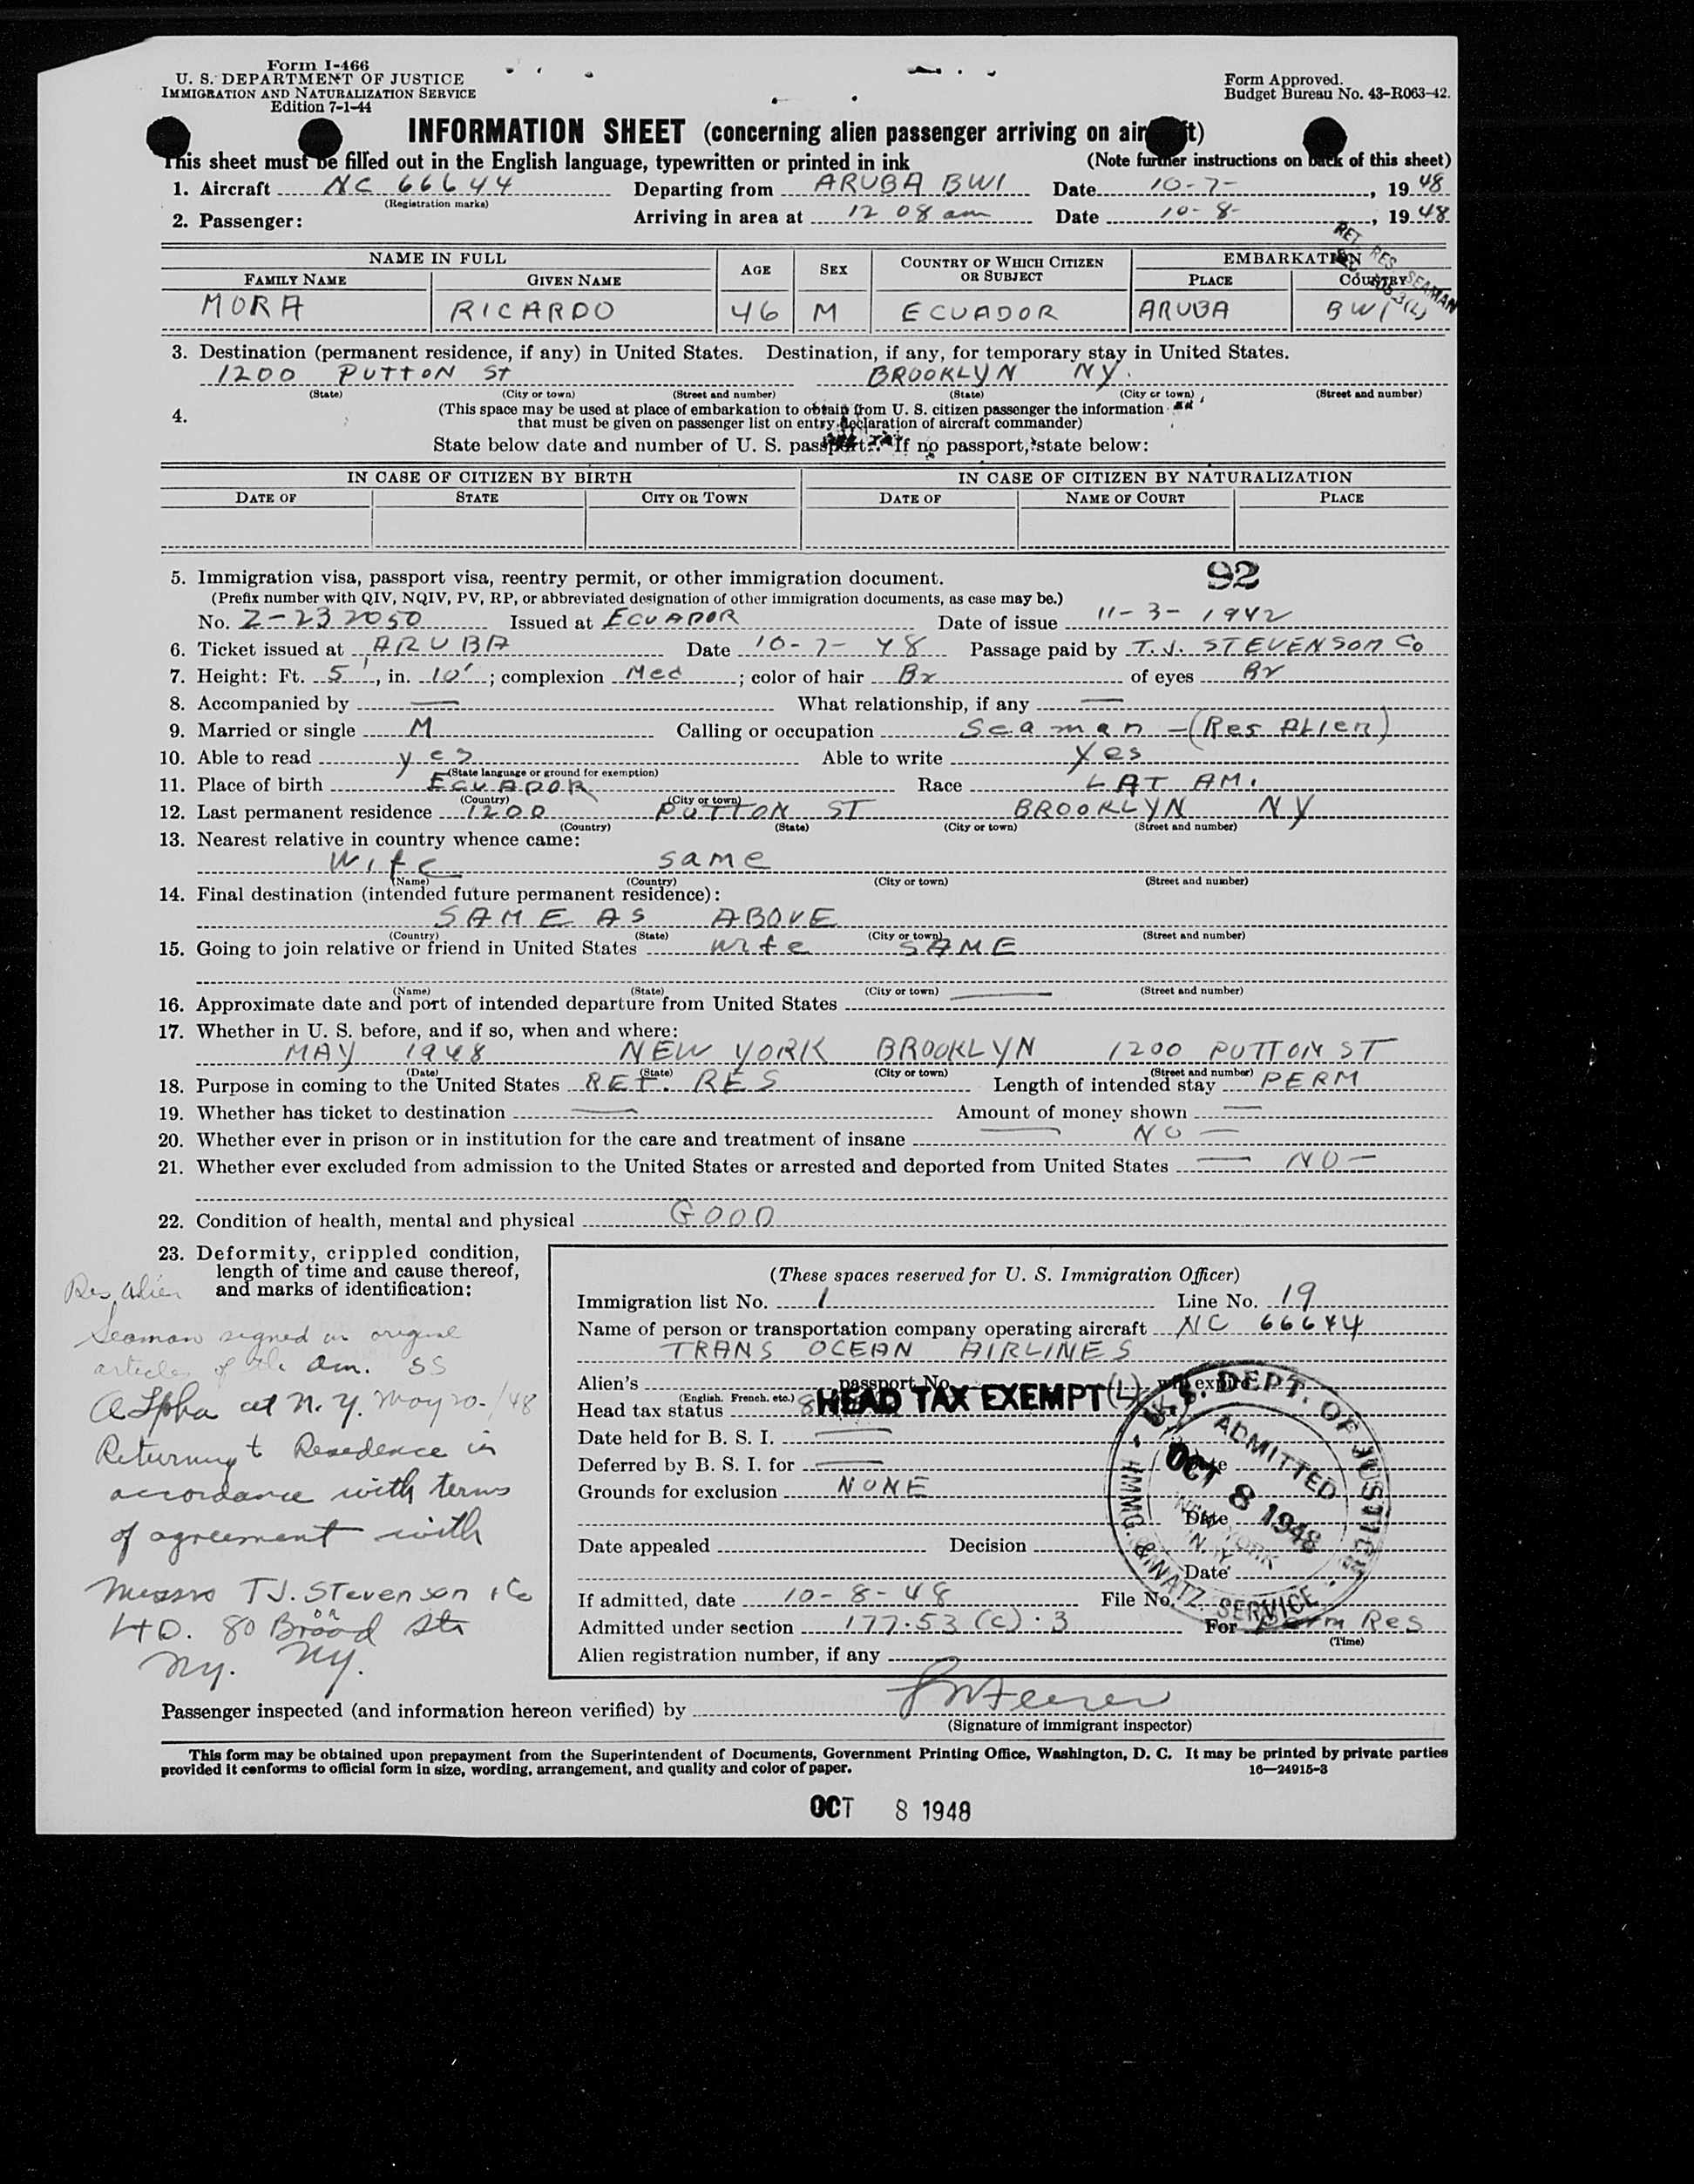 Form I-466
U. S. DEPARTMENT OF JUSTICE
IMMIGRATION AND NATURALIZATION SERVICE
Edition 7-1-44
Form Approved.
Budget Bureau No. 43-R063-42.
INFORMATION SHEET (concerning alien passenger arriving on aircraft)
This sheet must be filled out in the English language, typewritten or printed in ink (Note further instructions on back of this sheet)
1. Aircraft NC 66644 Departing from ARUBA BWI Date 10-7-, 1948
(Registration marks)
2. Passenger: Arriving in area at 12 08 am Date 10-8-, 1948
RET. RES. SEAMAN
NAME IN FULL AGE SEX COUNTRY OF WHICH CITIZEN OR SUBJECT EMBARKATION
FAMILY NAME GIVEN NAME PLACE COUNTRY
MORA RICARDO 46 M ECUADOR ARUBA BWI
3. Destination (permanent residence, if any) in United States. Destination, if any, for temporary stay in United States.
1200 PUTTON St BROOKLYN NY.
(State) (City or town) (Street and number) (State) (City or town) (Street and number)
4. (This space may be used at place of embarkation to obtain from U. S. citizen passenger the information
that must be given on passenger list on entry declaration of aircraft commander)
State below date and number of U. S. passport. If no passport, state below:
IN CASE OF CITIZEN BY BIRTH IN CASE OF CITIZEN BY NATURALIZATION
DATE OF STATE CITY OR TOWN DATE OF NAME OF COURT PLACE
5. Immigration visa, passport visa, reentry permit, or other immigration document. 92
(Prefix number with QIV, NQIV, PV, RP, or abbreviated designation of other immigration documents, as case may be.)
No. Z-232050 Issued at ECUADOR Date of issue 11-3-1942
6. Ticket issued at ARUBA Date 10-7-48 Passage paid by T.J. STEVENSON Co
7. Height: Ft. 5', in. 10'; complexion Med; color of hair Br of eyes Br
8. Accompanied by — What relationship, if any —
9. Married or single M Calling or occupation Seaman - (Res ALIEN)
10. Able to read yes Able to write Yes
(State language or ground for exemption)
11. Place of birth ECUADOR Race LAT AM.
(Country) (City or town)
12. Last permanent residence 1200 PUTTON ST BROOKLYN NY
(Country) (State) (City or town) (Street and number)
13. Nearest relative in country whence came:
wife same
(Name) (Country) (City or town) (Street and number)
14. Final destination (intended future permanent residence):
SAME AS ABOVE
(Country) (State) (City or town) (Street and number)
15. Going to join relative or friend in United States wife SAME
(Name) (State) (City or town) (Street and number)
16. Approximate date and port of intended departure from United States —
17. Whether in U. S. before, and if so, when and where:
MAY 1948 NEW YORK BROOKLYN 1200 PUTTON ST
(Date) (State) (City or town) (Street and number)
18. Purpose in coming to the United States RET. RES Length of intended stay PERM
19. Whether has ticket to destination — Amount of money shown —
20. Whether ever in prison or in institution for the care and treatment of insane — NO —
21. Whether ever excluded from admission to the United States or arrested and deported from United States — NO —
22. Condition of health, mental and physical GOOD
23. Deformity, crippled condition,
length of time and cause thereof,
and marks of identification:
Res Alien
Seaman signed on original
articles of the Am. SS
at N.Y. May 20-/48
Returning to Residence in
accordance with terms
of agreement with
Messrs T.J. Stevenson & Co
80 Broad St
NY. NY.
(These spaces reserved for U. S. Immigration Officer)
Immigration list No. 1 Line No. 19
Name of person or transportation company operating aircraft NC 66644
TRANS OCEAN AIRLINES
Alien's passport No. will expire
(English, French, etc.)
Head tax status HEAD TAX EXEMPT (L)
Date held for B. S. I. —
Deferred by B. S. I. for — Date
Grounds for exclusion NONE
Date
Date appealed Decision
Date
If admitted, date 10-8-48 File No.
Admitted under section 177.53 (c).3 For Perm Res
(Time)
Alien registration number, if any
U.S. DEPT. OF JUSTICE
ADMITTED
OCT 8 1948
NEW YORK
N.Y.
IMMG. & NATZ. SERVICE
Passenger inspected (and information hereon verified) by
(Signature of immigrant inspector)
This form may be obtained upon prepayment from the Superintendent of Documents, Government Printing Office, Washington, D. C. It may be printed by private parties
provided it conforms to official form in size, wording, arrangement, and quality and color of paper. 16—24915-3
OCT 8 1948